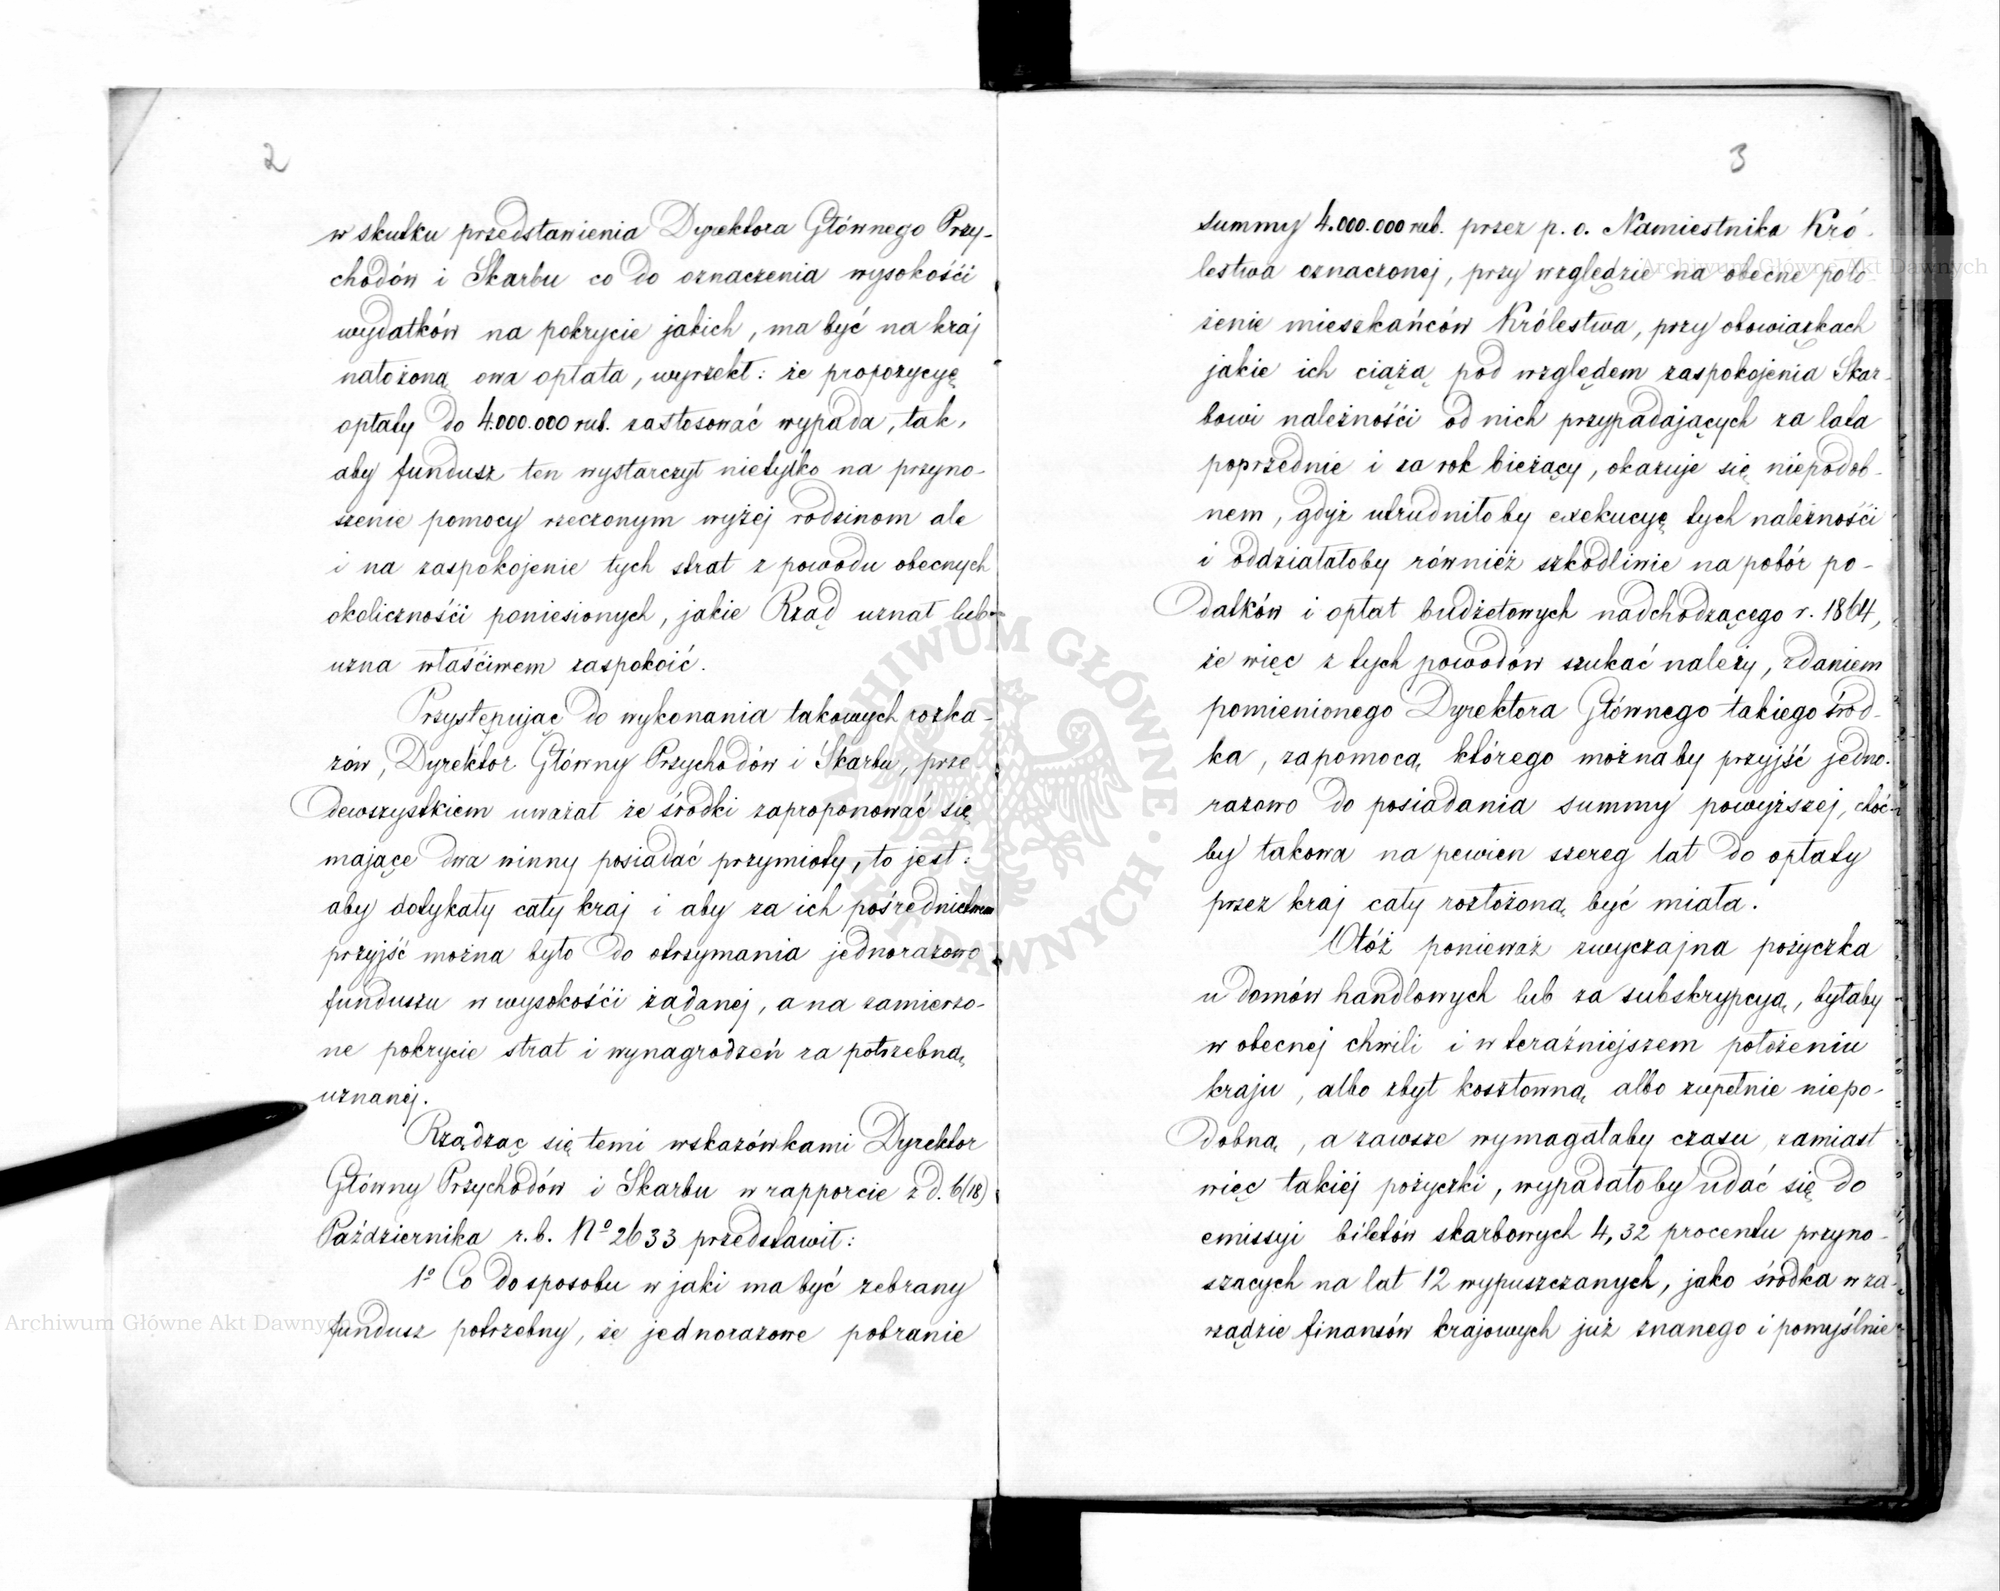 2
w skutku przedstawienia Dyrektora Głównego Przy-
chodów i Skarbu co do oznaczenia wysokości
wydatków na pokrycie jakich, ma być na kraj
nałożoną owa opłata, wyrzekł: że propozycyę
opłaty do 4.000.000 rub. zastosować wypada, tak,
aby fundusz ten wystarczył nietylko na przyno-
szenie pomocy rzeczonym wyżej rodzinom ale
i na zaspokojenie tych strat z powodu obecnych
okoliczności poniesionych, jakie Rząd uznał lub
uzna właściwem zaspokoić.
Przystępując do wykonania takowych rozka-
zów, Dyrektor Główny Przychodów i Skarbu, prze
dewszystkiem uważał że środki zaproponować się
mające dwa winny posiadać przymioty, to jest:
aby dotykały cały kraj i aby za ich pośrednictwem
przyjść można było do otrzymania jednorazowo
funduszu w wysokości żądanej, a na zamierzo-
ne pokrycie strat i wynagrodzeń za potrzebną
uznanej.
Rządząc się temi wskazówkami Dyrektor
Główny Przychodów i Skarbu w rapporcie z d. 6/18)
Października r.b. No 2633 przedstawił:
1o Co do sposobu w jaki ma być zebrany
fundusz potrzebny, że jednorazowe pobranie
3
summy 4.000.000 rub. przez p. o. Namiestnika Kró-
lestwa oznaczonej, przy względzie na obecne poło-
żenie mieszkańców Królestwa, przy obowiązkach
jakie ich ciążą pod względem zaspokojenia Skar-
bowi należności od nich przypadających za lata
poprzednie i za rok bieżący, okazuje się niepodob-
nem, gdyż utrudniłoby exekucyę tych należności
i oddziałałoby również szkodliwie na pobór po-
datków i opłat budżetowych nadchodzącego r. 1864,
że więc z tych powodów szukać należy, zdaniem
pomienionego Dyrektora Głównego takiego środ-
ka, zapomocą którego możnaby przyjść jedno-
razowo do posiadania summy powyższej, choć-
by takowa na pewien szereg lat do opłaty
przez kraj cały rozłożoną być miała.
Otóż ponieważ zwyczajna pożyczka
u domów handlowych lub za subskrypcyą, byłaby
w obecnej chwili i w teraźniejszem położeniu
kraju, albo zbyt kosztowną albo zupełnie niepo-
dobną, a zawsze wymagałaby czasu, zamiast
więc takiéj pożyczki, wypadałoby udać się do
emissyi biletów skarbowych 4,32 procentu przyno-
szących na lat 12 wypuszczanych, jako środka w za-
rządzie finansów krajowych już znanego i pomyślnie
Archiwum Główne Akt Dawnych
Archiwum Główne Akt Dawnych
ARCHIWUM GŁÓWNE AKT DAWNYCH